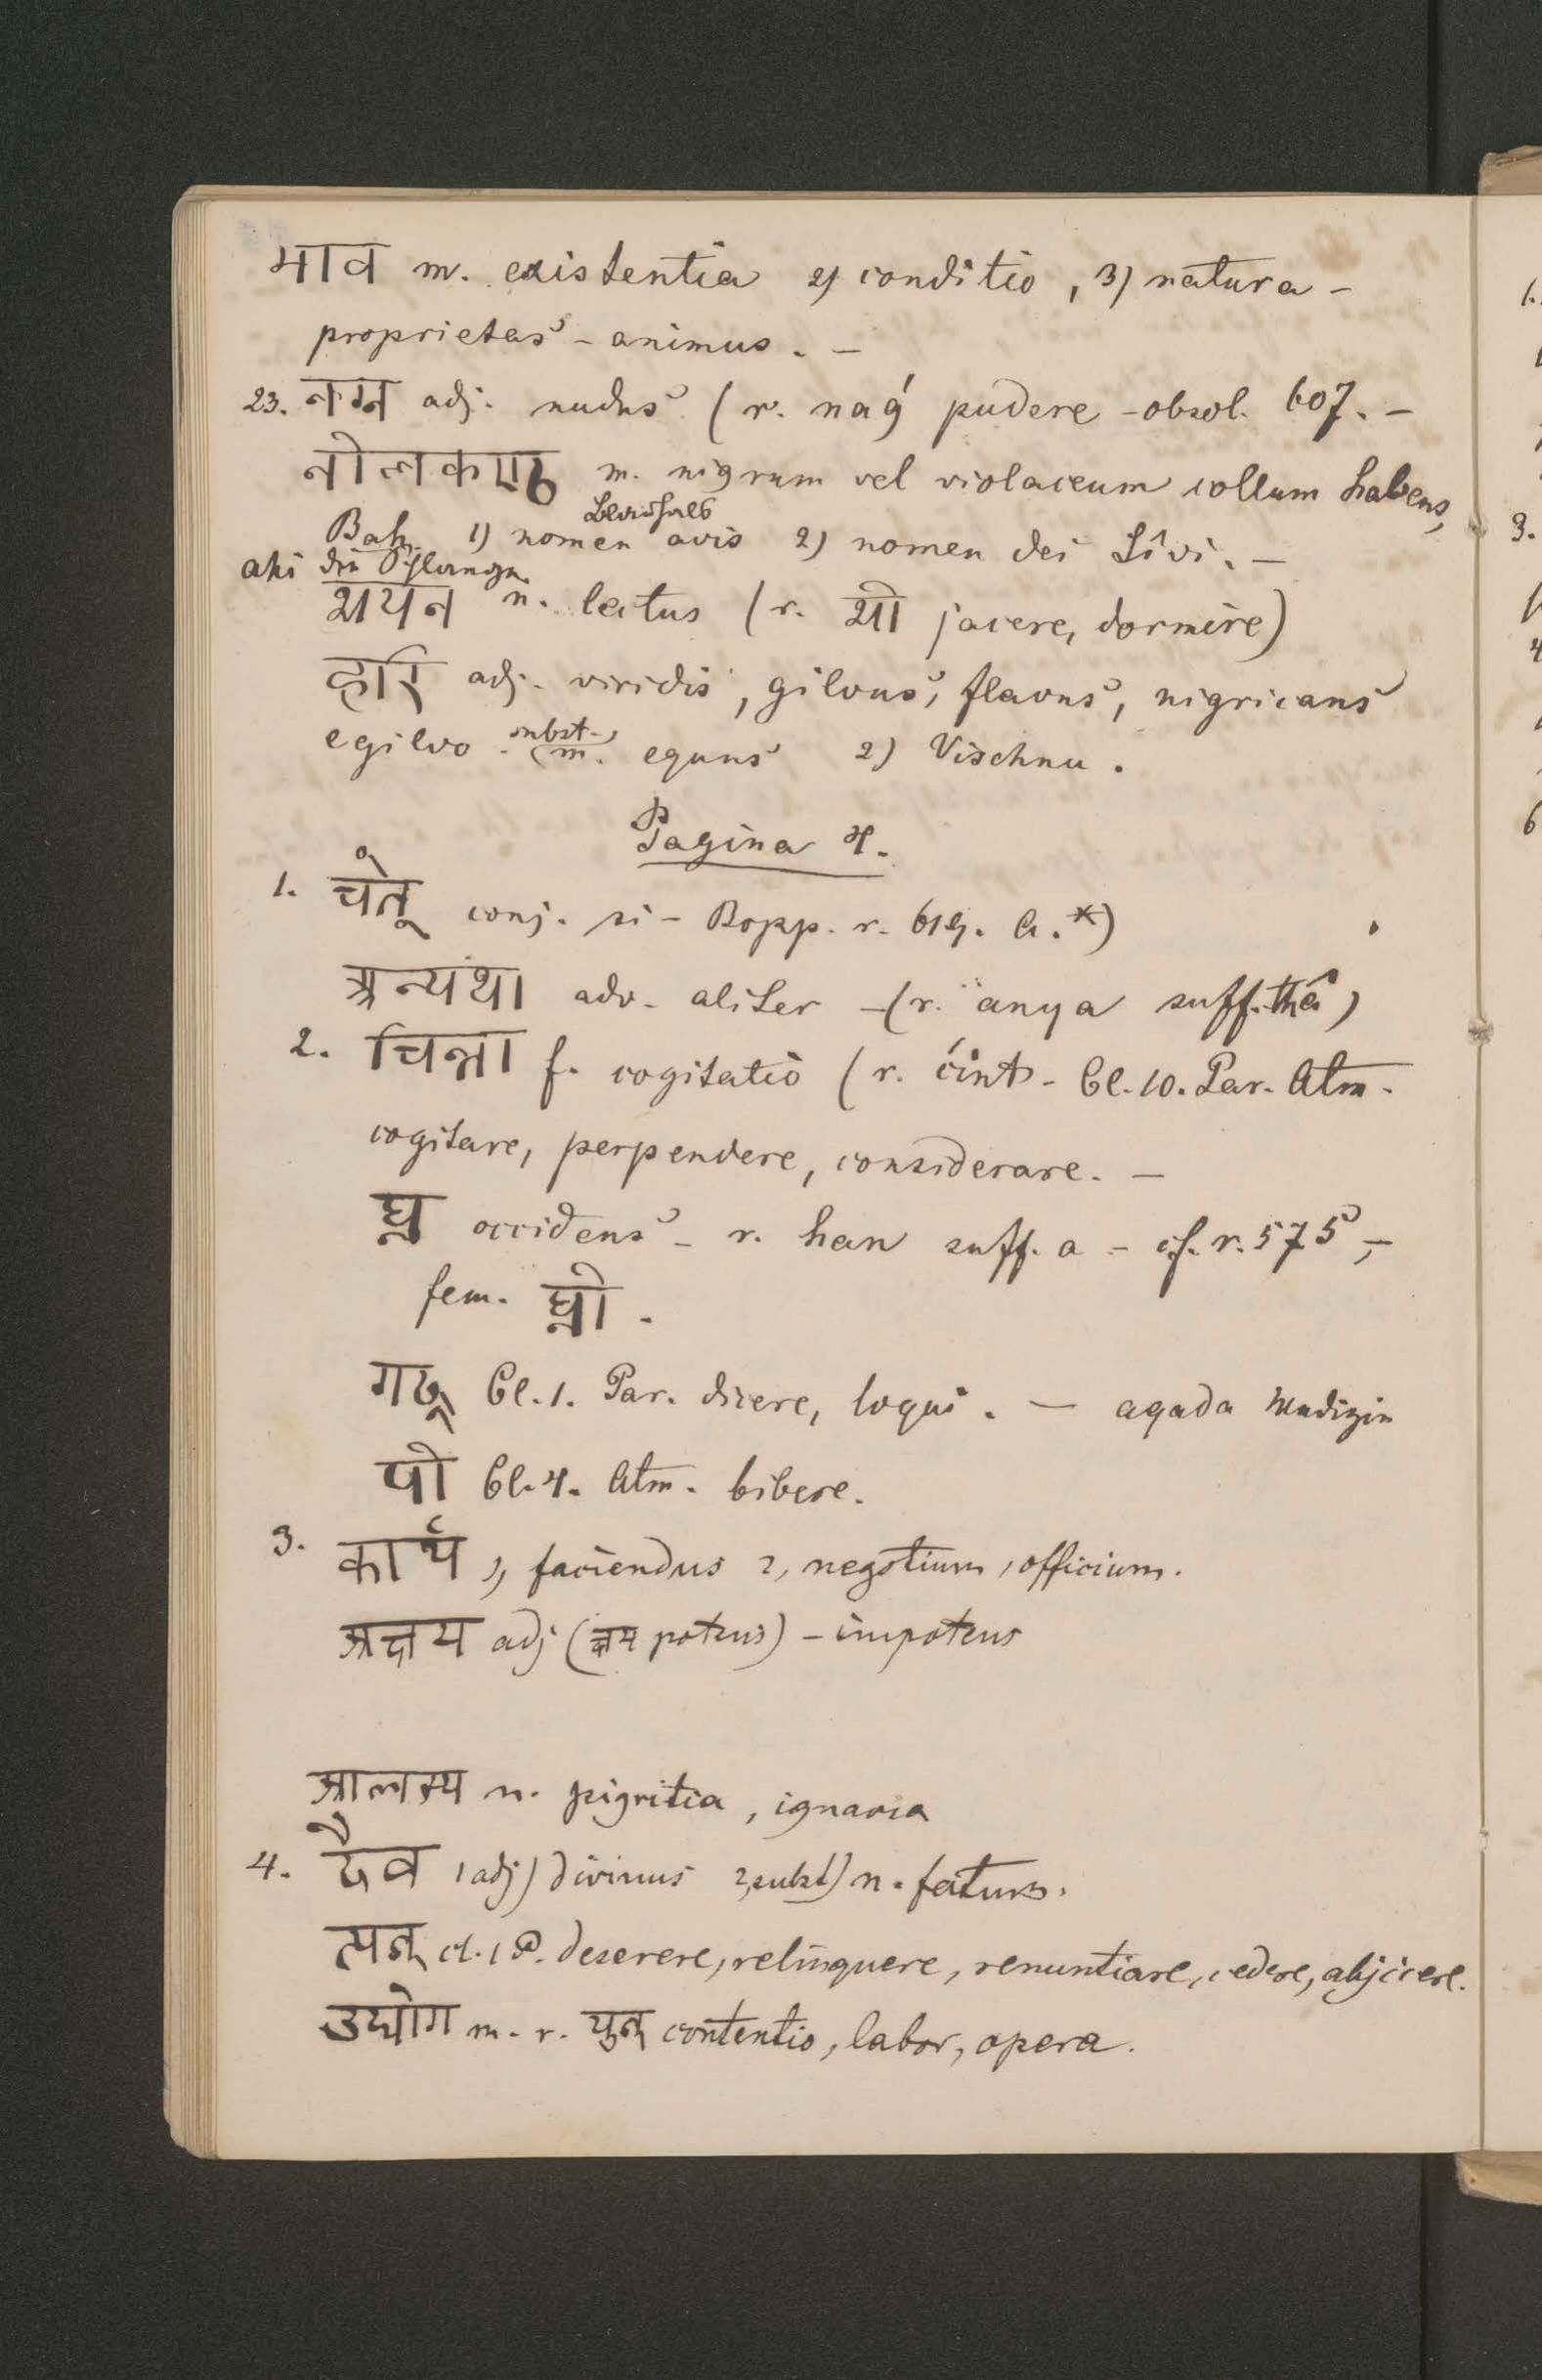 भाव m. existentia 2) conditio, 3) natura -
proprietas - animus. -
23. नग्न adj. nudus (r. naǵ pudere - obsol. 607. -
नीलकण्ठ m. nigrum vel violaceum collum habens,
Blauhals
Bah. 1) nomen avis 2) nomen dei Sîvi. -
ahi die Schlange.
शयन n. lectus (r. शी jacere, dormire)
हरि adj. viridis, gilvus, flavus, nigricans
e gilvo subst. m. equus 2) Vischnu.
Pagina 4.
1. चेत् conj. si - Bopp. r. 619. a.*)
अन्यथा adv. aliter - (r. anya suff. thâ)
2. चिन्ता f. cogitatio (r. ćint - Cl. 10. Par. Atm.
cogitare, perpendere, considerare. -
घ्न occidens - r. han suff. a - cf. r. 575, -
fem. घ्नी.
गद् Cl. 1. Par. dicere, loqui. - agada Medizin
पी Cl. 4. Atm. bibere.
3. कार्य 1, faciendus 2, negotium, officium.
अक्षम adj (क्षम potens) - impotens
आलस्य n. pigritia, ignavia
4. दैव 1 adj) divinus 2, subst) n. fatum.
त्यज् cl. 1 P. deserere, relinquere, renuntiare, cedere, abjicere.
उद्योग m. r. युज् contentio, labor, opera.